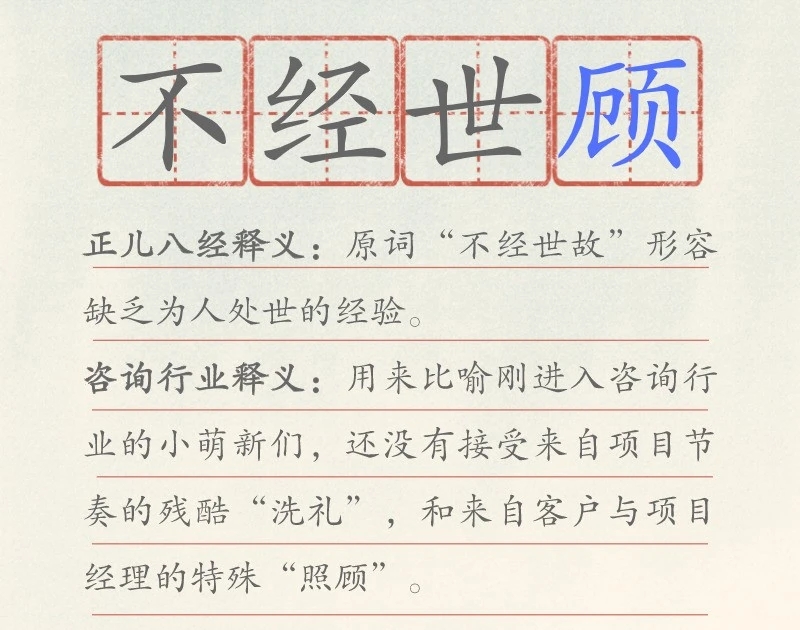 不经世顾
正儿八经释义：原词“不经世故”形容
缺乏为人处世的经验。
咨询行业释义：用来比喻刚进入咨询行
业的小萌新们，还没有接受来自项目节
奏的残酷“洗礼”，和来自客户与项目
经理的特殊“照顾”。